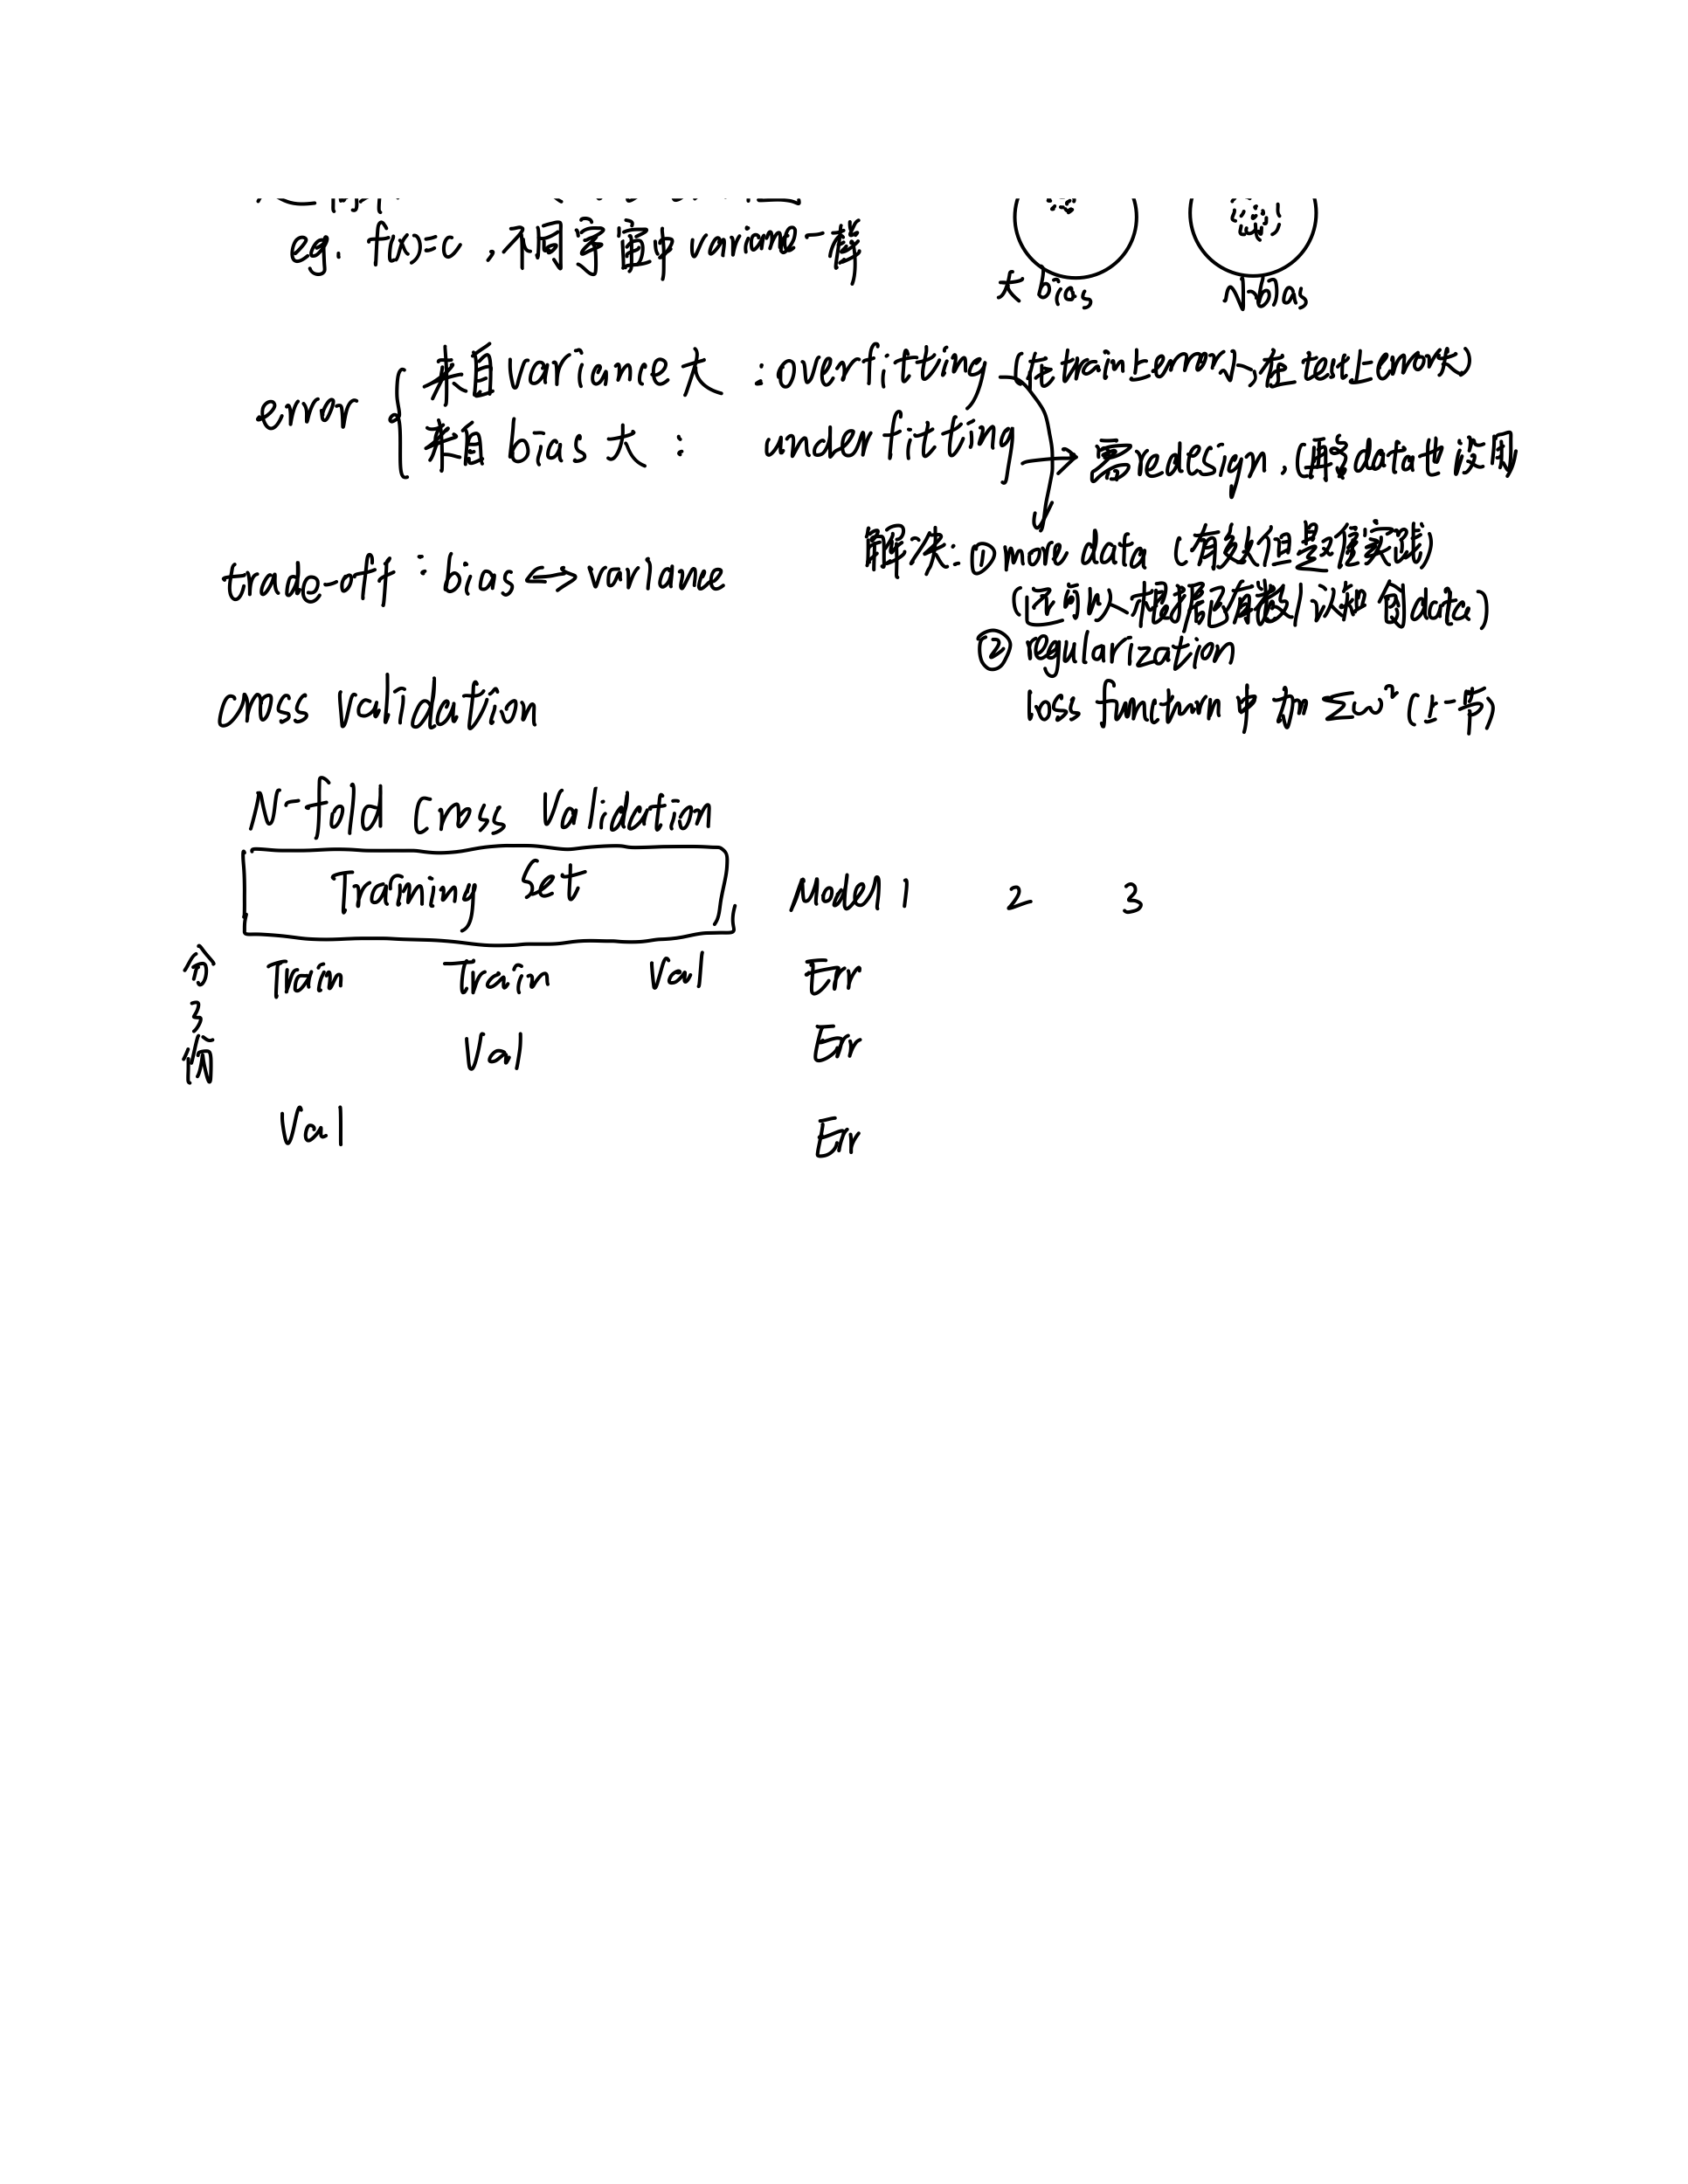 eg. f(x)=c ,不同宇宙中 variance 一样
大 bias 小 bias
error { 来自 variance 大 : overfitting (在 train 上 error 小,在 test 上 error 大)
来自 bias 大 : underfitting → 需 redesign, (再多 data 也没用
解决: ① more data (有效但是难实践)
trade-off : bias ↔ variance
(还可以根据已有数/认知 创 data)
② regularization
cross validation
loss function 中 加 Σw² (上一节)
N-fold Cross Validation
Training Set Model 1 2 3
分3份
Train Train Val Err
Val Err
Val Err